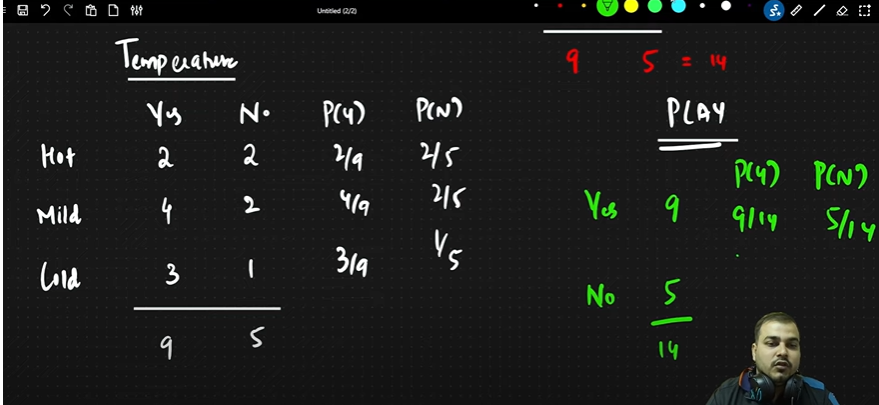 Untitled (2/2)
9 5 = 14
Temperature
Yes No P(Y) P(N)
Hot 2 2 2/9 2/5
Mild 4 2 4/9 2/5
Cold 3 1 3/9 1/5
9 5
PLAY
P(Y) P(N)
Yes 9 9/14 5/14
No 5
14